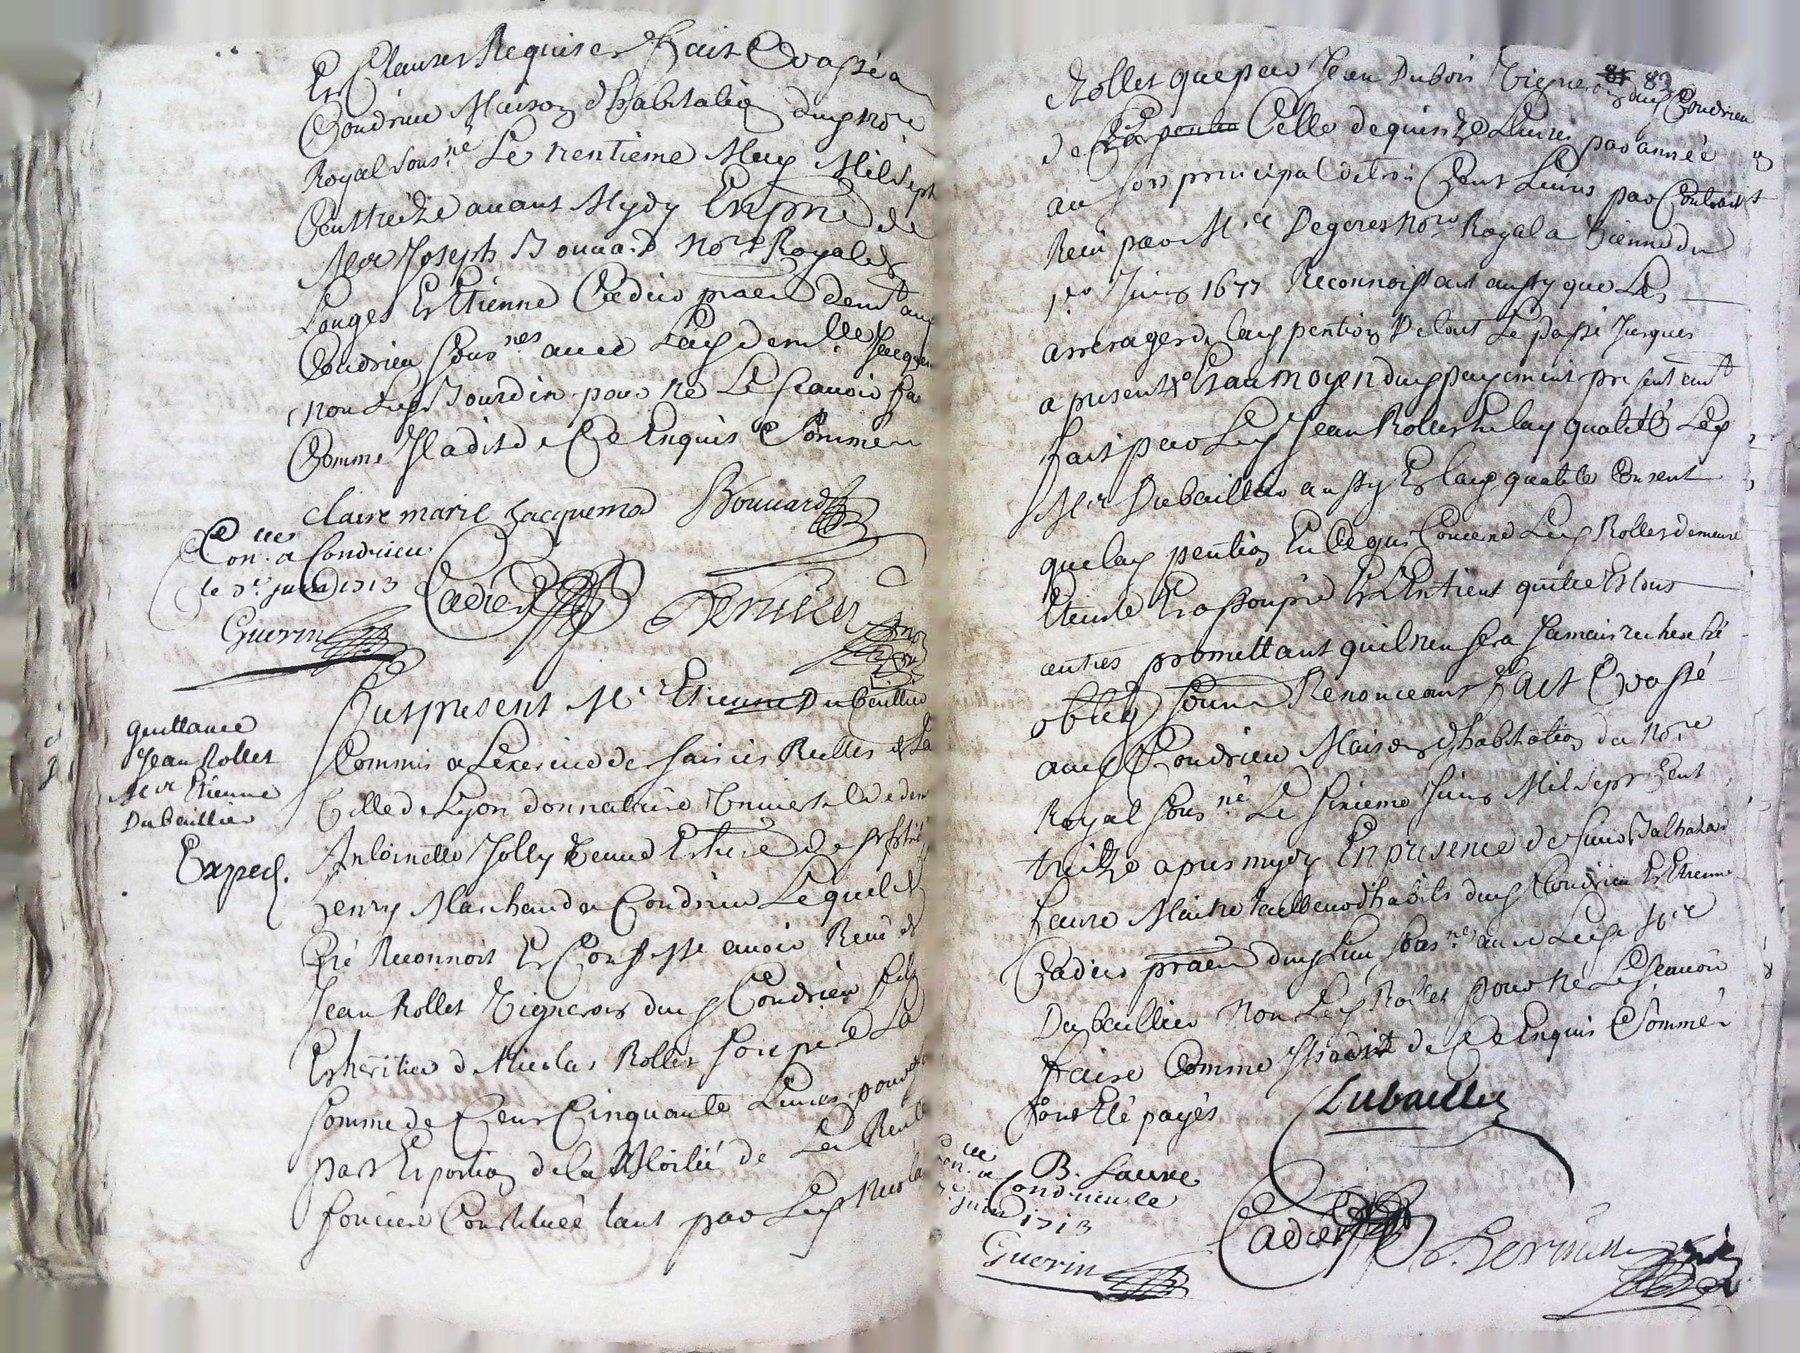 Et Clauses Requises Fait Et passé a
Condrieu Maison d'habitaõn dung nore
Royal sousné Le trentieme May Mil sept
Cent treize avant Mydy En pñce de
Mre Joseph Bouuard Nore Royal de
Longes Et Etienne Cadier praen demt aud
Condrieu sousnes avec Lad demlle Jacquem
non Led Bourdin pour ne Le sçavoir fa
Comme Il a dit de Ce Enquis Et Sommé
claire marie Jacquemod Bouuard
Conlle a Condrieu
le 3e juin 1713
Cadier
Guerin
Fut present Mr Etienne Dubaillier
Commis a Lexercice des saisies Reelles de La
Ville de Lyon donnataire Universelle de dem
Antoinette Jolly veuve Et here de
henry Marchand a Condrieu Lequel de
Gré Reconnoit Et Confesse avoir Receu de
Jean Rollet Vigneron dud Condrieu fils
Et heritier de Nicolas Rollet son pere La
somme de Cent Cinquante Livres pour sa
part Et portion de la Moitié de La Rente
fonciere Constituée tant par Led Nicolas
quittance
Jean Rollet
Mre Etienne
Dubaillier
Exped.
81 82
Rollet que par Jean Dubois Vigneron dud Condrieu
de Celle de quinze Livres par année
au sors principal de trois Cent Livres par Contract
Receu par Mre Degeres Nore Royal a Vienne du
1er Juin 1677 Reconnoissant aussy que Les
arrerages de lad pention De tout Le passé Jusques
a present Et au moyen dud payement presentemt
fait par Led Jean Rollet En lad qualité Led
Mre Dubaillier aussy En lad qualité Consent
que lad pention En Ce qui Concerne Led Rollet demeure
Eteinte Et assoupie Et L'En tient quitte Et tous
autres promettant quil n'en sera Jamais recherché
oblig soum Renonceant Fait Et passé
aud Condrieu Maison d'habitation du Nore
Royal sousné Le sixieme Juin Mil sept Cent
treize apres mydy En presence de sieur Balthazard
faure Maitre tailleur d'habits dud Condrieu Et Etienne
Cadier praen dud Lieu sousnes avec Led Mre
Dubaillier Non Led Rollet pour ne Le sçavoir
faire Comme Il a dit de Ce Enquis Et Sommé
Dubaillier
B. faure
Condrieu le
juin 1713
Cadier
Guerin